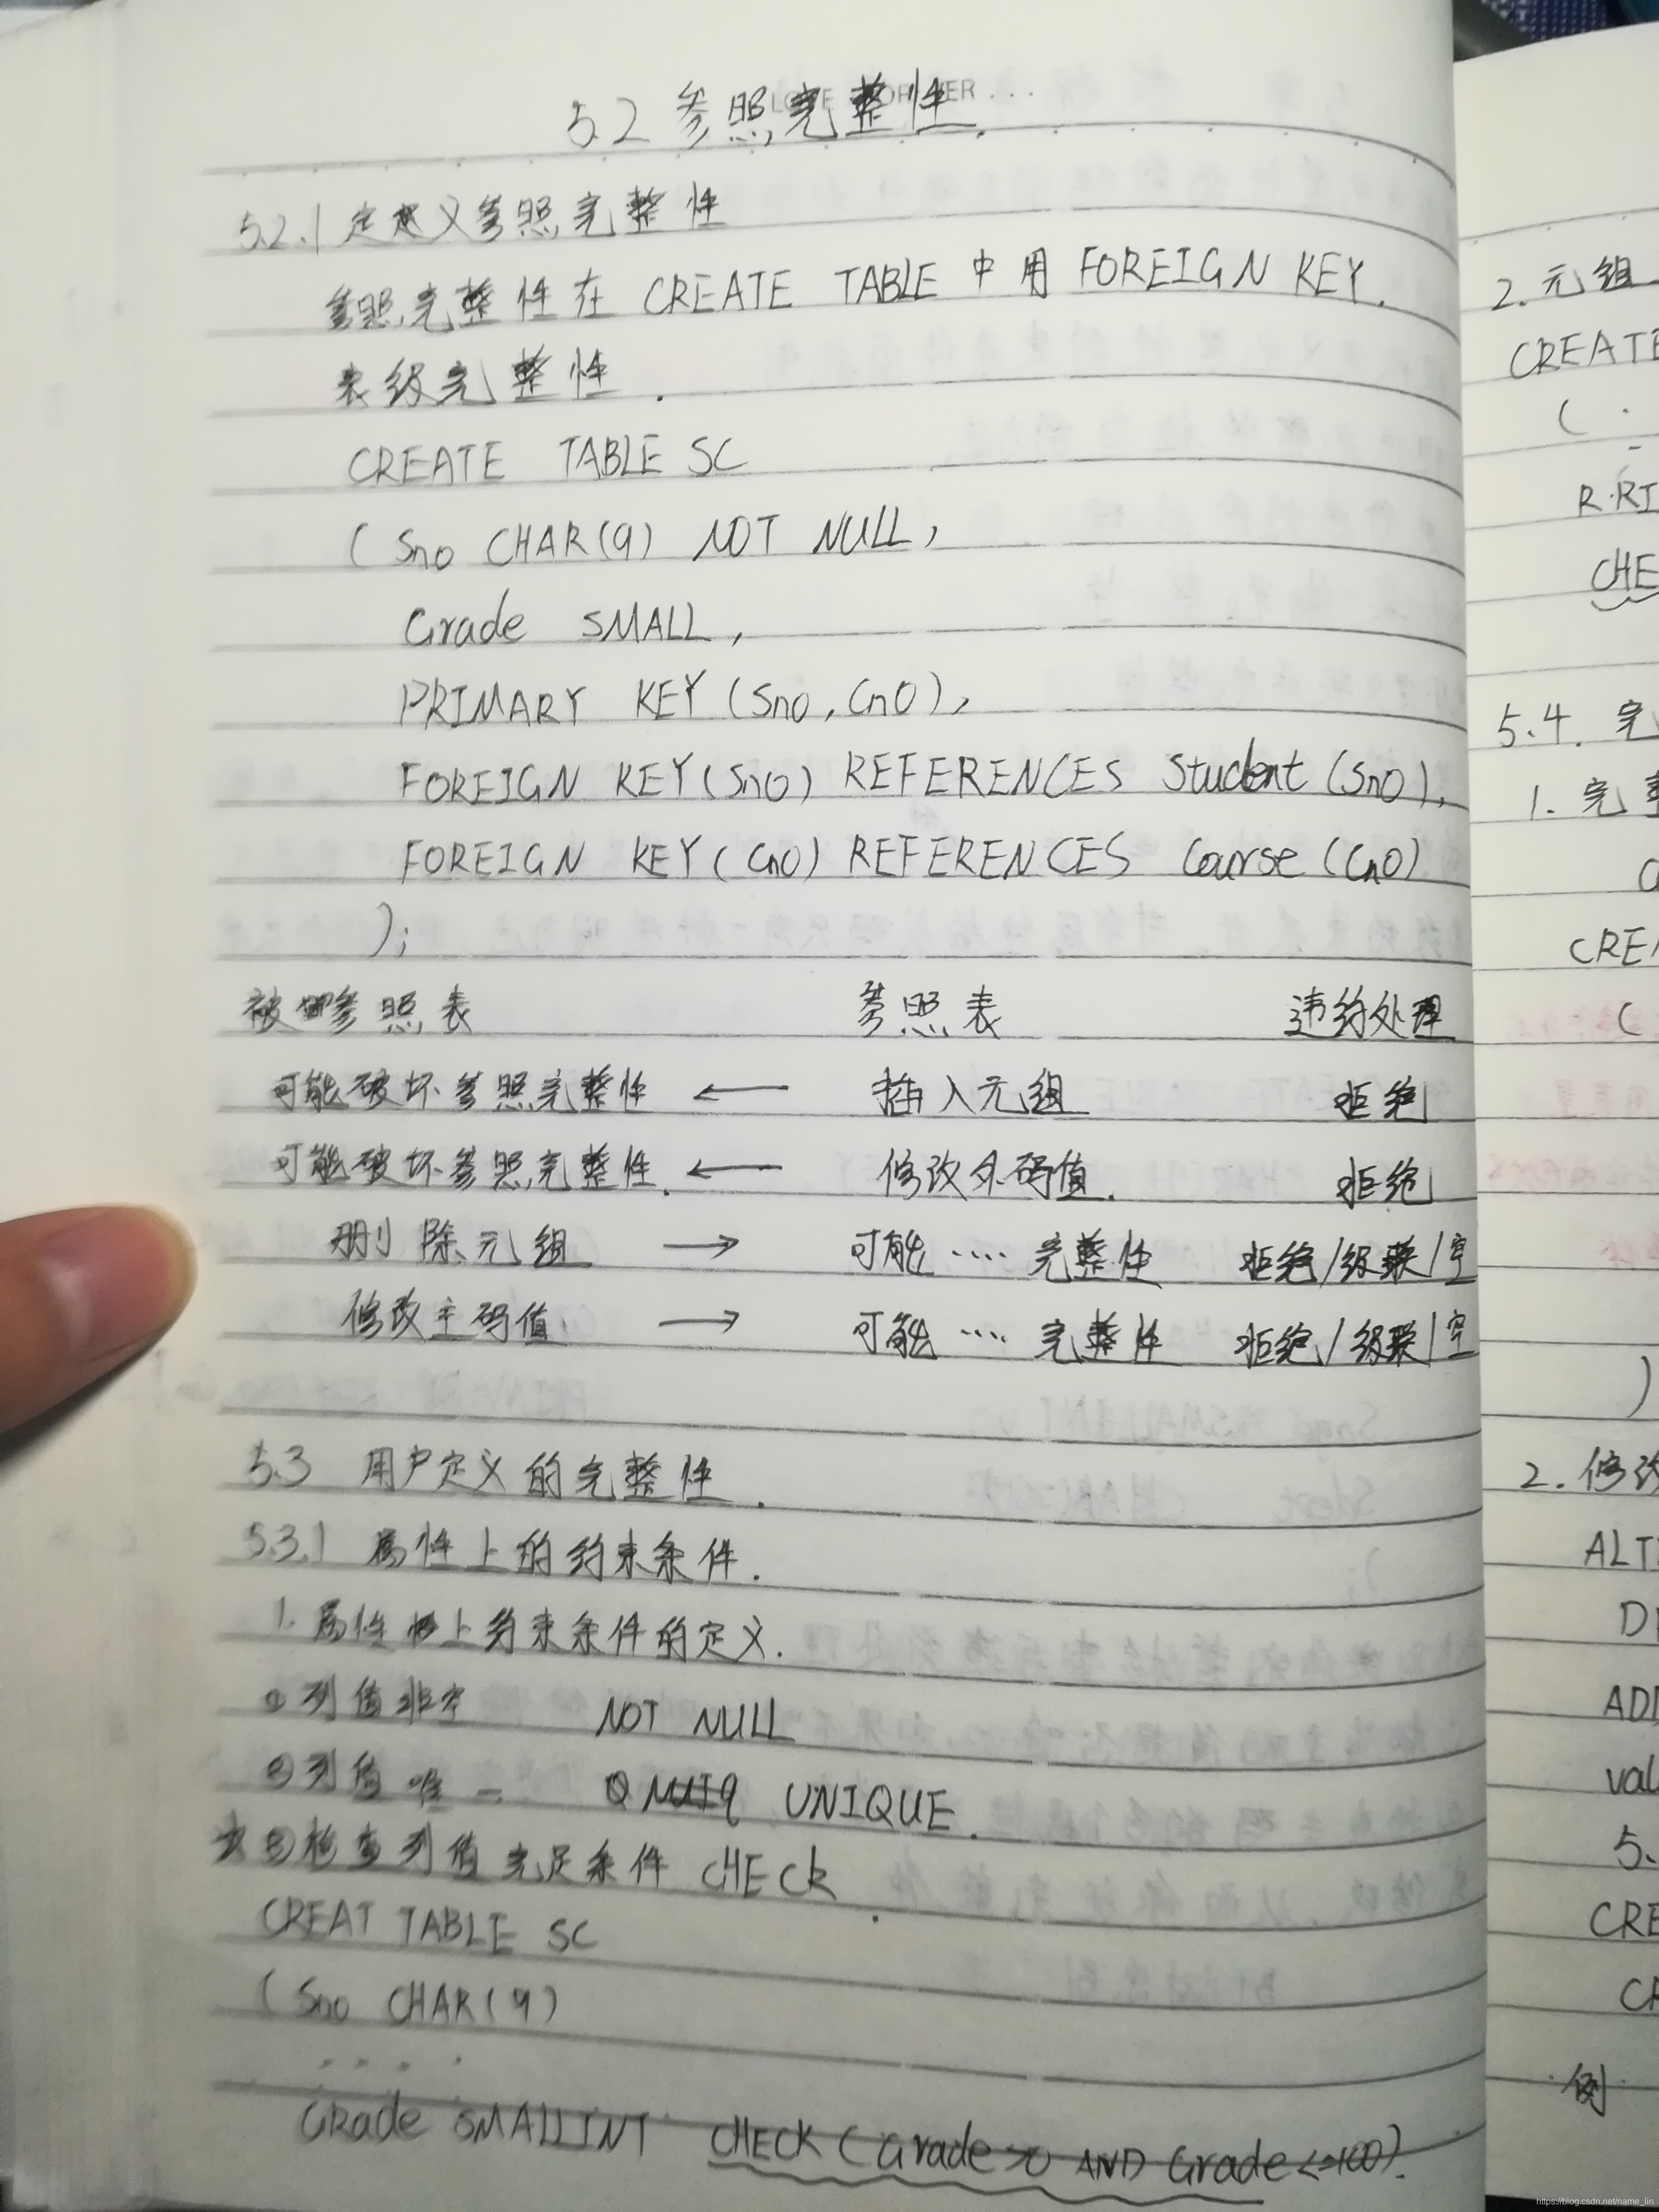 5.2 参照完整性
5.2.1 定义参照完整性
参照完整性在 CREATE TABLE 中用 FOREIGN KEY.
表级完整性.
CREATE TABLE SC
( Sno CHAR(9) NOT NULL,
Grade SMALL,
PRIMARY KEY (Sno, Cno),
FOREIGN KEY(Sno) REFERENCES Student (Sno),
FOREIGN KEY(Cno) REFERENCES Course (Cno)
);
被参照表 参照表 违约处理
可能破坏参照完整性 ← 插入元组 拒绝
可能破坏参照完整性. ← 修改外码值. 拒绝
删除元组 → 可能 .... 完整性 拒绝/级联/空
修改主码值 → 可能 .... 完整性 拒绝/级联/空
5.3 用户定义的完整性.
5.3.1 属性上的约束条件.
1. 属性上约束条件的定义.
①列值非空 NOT NULL
②列值唯一 UNIQUE.
③检查列值 足条件 CHECK.
CREAT TABLE SC
( Sno CHAR(9)
....
GRade SMALLINT CHECK (Grade>0 AND Grade<=100).
2. 元组
CREATE
(
CHE
5.4. 完
1. 完整
CREA
(
)
2. 修改
ALT
ADD
val
5.
CRE
例
https://blog.csdn.net/name_lin